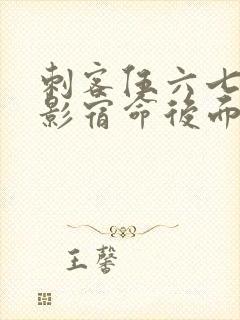 刺客伍六七
影宿命後而
王馨